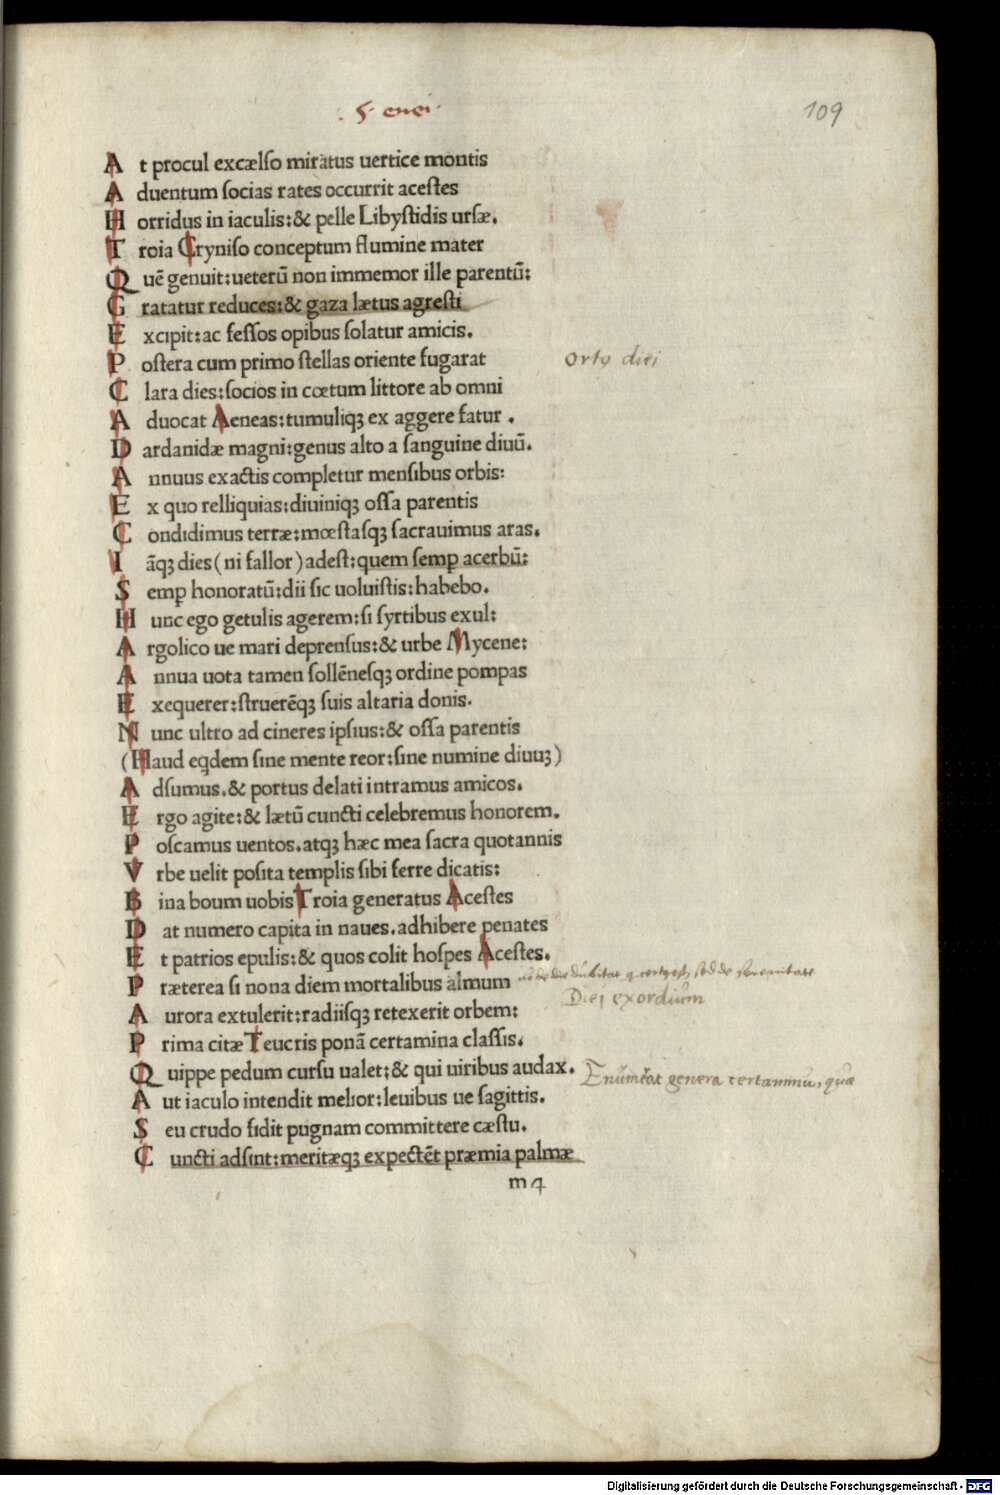 .5. enei.
109
A t procul excælſo miratus uertice montis
A duentum ſocias rates occurrit aceſtes
H orridus in iaculis:& pelle Libyſtidis urſæ.
T roia Cryniſo conceptum flumine mater
Q uē genuit:ueterū non immemor ille parentū:
G ratatur reduces:& gaza lætus agreſti
E xcipit:ac feſſos opibus ſolatur amicis.
P oſtera cum primo ſtellas oriente fugarat
Ortꝰ diei
C lara dies:ſocios in cœtum littore ab omni
A duocat Aeneas:tumuliqꝫ ex aggere fatur .
D ardanidæ magni:genus alto a ſanguine diuū.
A nnuus exactis completur menſibus orbis:
E x quo relliquias:diuiniqꝫ oſſa parentis
C ondidimus terræ:mœſtaſqꝫ ſacrauimus aras.
I āqꝫ dies (ni fallor) adeſt:quem ſemꝑ acerbū:
S emꝑ honoratū:dii ſic uoluiſtis:habebo.
H unc ego getulis agerem:ſi ſyrtibus exul:
A rgolico ue mari deprenſus:& urbe Mycene:
A nnua uota tamen ſollēneſqꝫ ordine pompas
E xequerer:ſtruerēqꝫ ſuis altaria donis.
N unc ultro ad cineres ipſius:& oſſa parentis
(Haud eqdem ſine mente reor:ſine numine diuuꝫ)
A dſumus.& portus delati intramus amicos.
E rgo agite:& lætū cuncti celebremus honorem.
P oſcamus uentos.atqꝫ hæc mea ſacra quotannis
V rbe uelit poſita templis ſibi ferre dicatis:
B ina boum uobis Troia generatus Aceſtes
D at numero capita in naues.adhibere penates
E t patrios epulis:& quos colit hoſpes Aceſtes.
P ræterea ſi nona diem mortalibus almum
de die dubitat sed de serenitate
Diei exordium
A urora extulerit:radiiſqꝫ retexerit orbem:
P rima citæ Teucris ponā certamina claſſis.
Q uippe pedum curſu ualet:& qui uiribus audax.
Enumerat genera certaminū, quæ
A ut iaculo intendit melior:leuibus ue ſagittis.
S eu crudo fidit pugnam committere cæſtu.
C uncti adſint:meritæqꝫ expectēt præmia palmæ
m 4
Digitalisierung gefördert durch die Deutsche Forschungsgemeinschaft - DFG